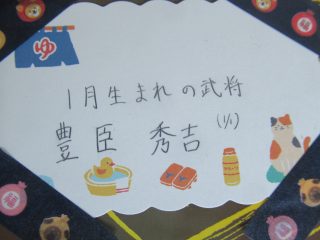 ゆ
1月生まれの武将
豊臣 秀吉 (1/1)